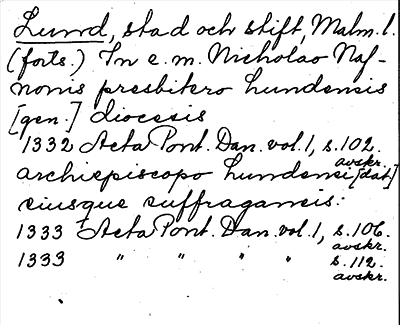 Lund, stad och stift, Malm. l.
(forts.) In e. m. Nicholao Naf-
nonis presbitero Lundensis
[gen.] diocesis
1332 Acta Pont. Dan. vol. 1, s. 102.
avskr.
archiepiscopo Lundensi [dat]
eiusque suffraganeis:
1333 Acta Pont. Dan. vol. 1, s. 106.
avskr.
1333 " " " " s. 112.
avskr.